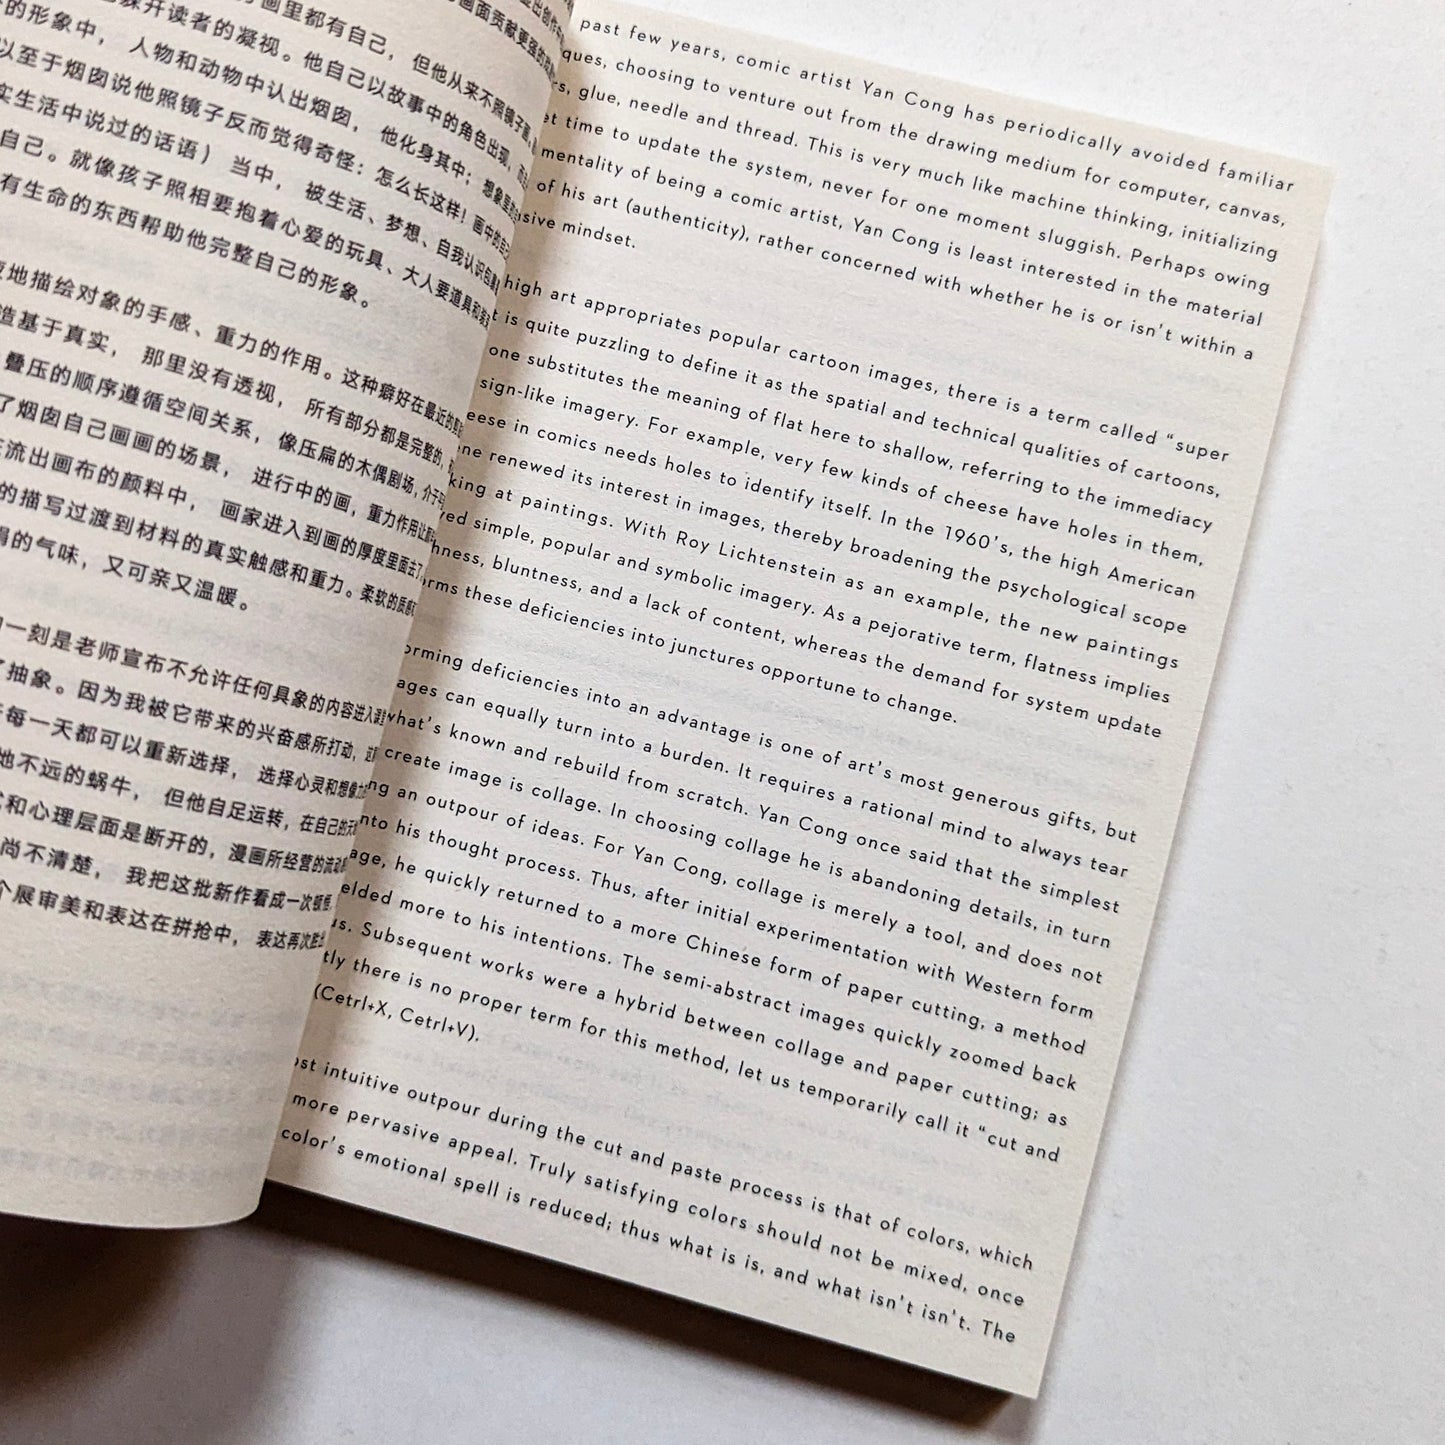 画里都有自己， 但他从来不照镜子画
躲开读者的凝视。他自己以故事中的角色出现，
的形象中， 人物和动物中认出烟囱， 他化身其中；
以至于烟囱说他照镜子反而觉得奇怪：怎么长这样！画中的
实生活中说过的话语） 当中， 被生活、梦想、自我认识包
自己。就像孩子照相要抱着心爱的玩具、大人要道具和
有生命的东西帮助他完整自己的形象。
地描绘对象的手感、重力的作用。这种癖好在最近的
造基于真实， 那里没有透视， 所有部分都是完整的，
叠压的顺序遵循空间关系，像压扁的木偶剧场，介于
了烟囱自己画画的场景， 进行中的画，重力作用让
流出画布的颜料中， 画家进入到画的厚度里面去了
的描写过渡到材料的真实触感和重力。柔软的质感
的气味，又可亲又温暖。
一刻是老师宣布不允许任何具象的内容进入
了抽象。因为我被它带来的兴奋感所打动，
每一天都可以重新选择， 选择心灵和想像力
地不远的蜗牛， 但他自足运转，在自己的
和心理层面是断开的，漫画所经营的流动
尚不清楚， 我把这批新作看成一次
个展审美和表达在拼抢中，表达再次
past few years, comic artist Yan Cong has periodically avoided familiar
ques, choosing to venture out from the drawing medium for computer, canvas,
rs, glue, needle and thread. This is very much like machine thinking, initializing
et time to update the system, never for one moment sluggish. Perhaps owing
mentality of being a comic artist, Yan Cong is least interested in the material
of his art (authenticity), rather concerned with whether he is or isn't within a
sive mindset.
high art appropriates popular cartoon images, there is a term called "super
t is quite puzzling to define it as the spatial and technical qualities of cartoons,
one substitutes the meaning of flat here to shallow, referring to the immediacy
sign-like imagery. For example, very few kinds of cheese have holes in them,
eese in comics needs holes to identify itself. In the 1960's, the high American
ene renewed its interest in images, thereby broadening the psychological scope
king at paintings. With Roy Lichtenstein as an example, the new paintings
ed simple, popular and symbolic imagery. As a pejorative term, flatness implies
hness, bluntness, and a lack of content, whereas the demand for system update
orms these deficiencies into junctures opportune to change.
orming deficiencies into an advantage is one of art's most generous gifts, but
ages can equally turn into a burden. It requires a rational mind to always tear
what's known and rebuild from scratch. Yan Cong once said that the simplest
create image is collage. In choosing collage he is abandoning details, in turn
ng an outpour of ideas. For Yan Cong, collage is merely a tool, and does not
nto his thought process. Thus, after initial experimentation with Western form
age, he quickly returned to a more Chinese form of paper cutting, a method
elded more to his intentions. The semi-abstract images quickly zoomed back
us. Subsequent works were a hybrid between collage and paper cutting; as
tly there is no proper term for this method, let us temporarily call it "cut and
(Cetrl+X, Cetrl+V).
ost intuitive outpour during the cut and paste process is that of colors, which
more pervasive appeal. Truly satisfying colors should not be mixed, once
color's emotional spell is reduced; thus what is is, and what isn't isn't. The